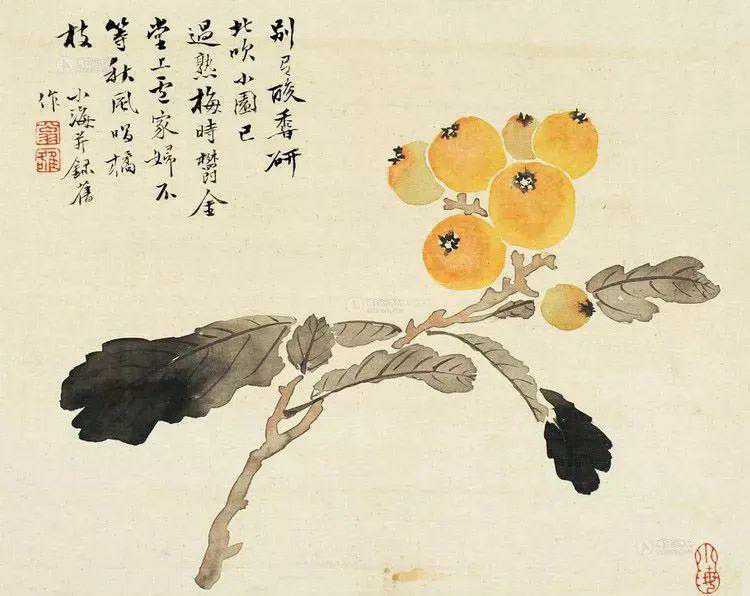 别有酸香研
北吹小園已
過熟梅時鬱金
堂上盧家婦不
等秋風唱橘
枝
小海并錄舊
作
小海